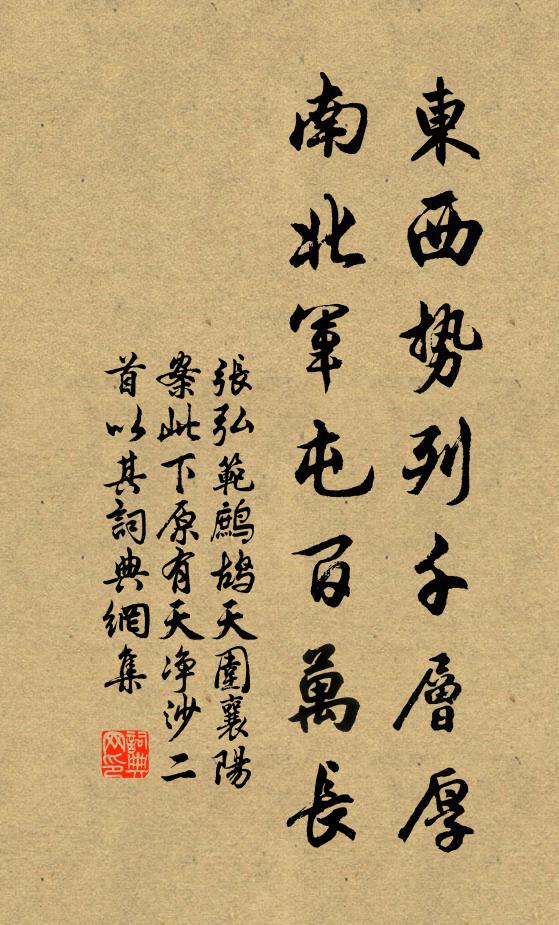 東西勢列千層厚
南北軍屯百萬長
張弘範鷓鴣天圍襄陽
案此下原有天净沙二
首以其詞典網集
詞典網印